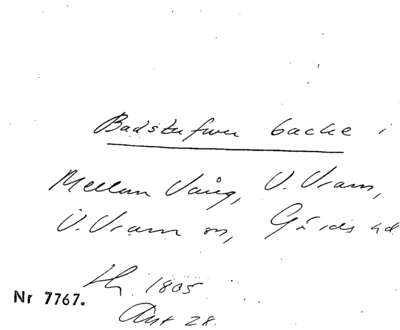 Badstufwu backe i
Mellan Vång, V. Vram,
V. Vram sn, Gärds hd
1805
Nr 7767.
Akt 28.